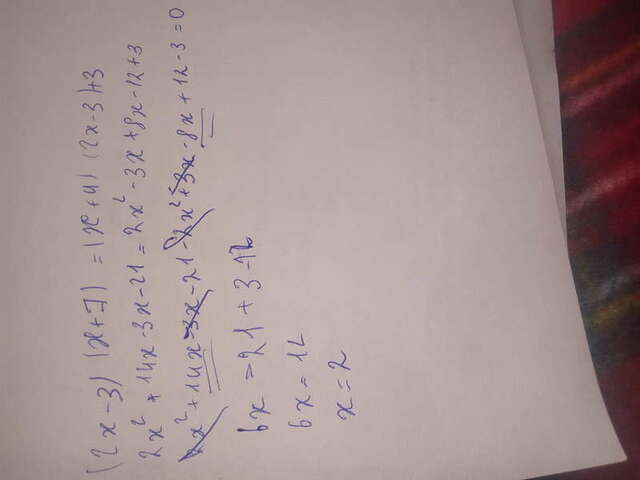 (2x-3) (x+7) = (x+4) (2x-3)+3
2x²+14x-3x-21=2x²-3x+8x-12+3
2x²+14x-3x-21-2x²+3x-8x+12-3=0
6x=21+3-12
6x=12
x=2